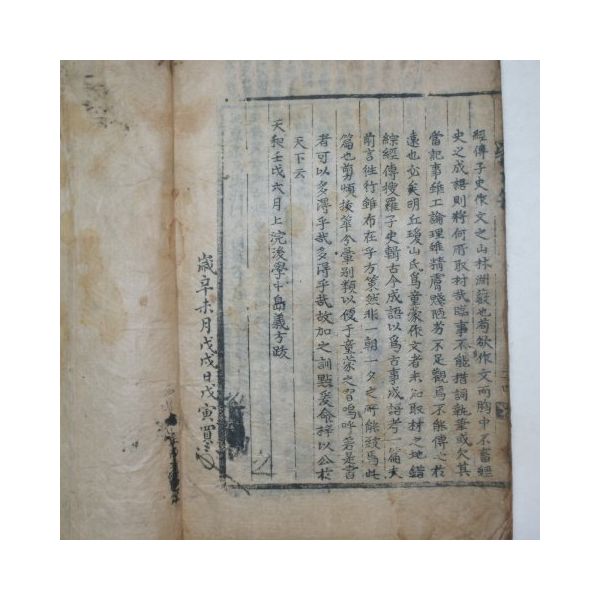 經傳子史作文之山林淵藪也苟欲作文而胸中不畜經
史之成語則將何所取材哉臨事不能措詞執筆或欠其
當記事雖工論理雖精膚淺陋劣不足觀焉不能傳之於
遠也必矣明丘瓊山氏爲童蒙作文者未知取材之地錯
綜經傳搜羅子史輯古今成語以爲古事成語考一篇夫
前言往行雖布在乎方策然非一朝一夕之所能鼓焉此
篇也剪煩撮華分彙別類以便于童蒙之習嗚呼若是書
者可以多得乎哉多得乎哉故加之訓點爰命梓以公於
天下云
天和壬戌六月上浣後學中島義方跋
歲辛未月戊戌日戊寅買